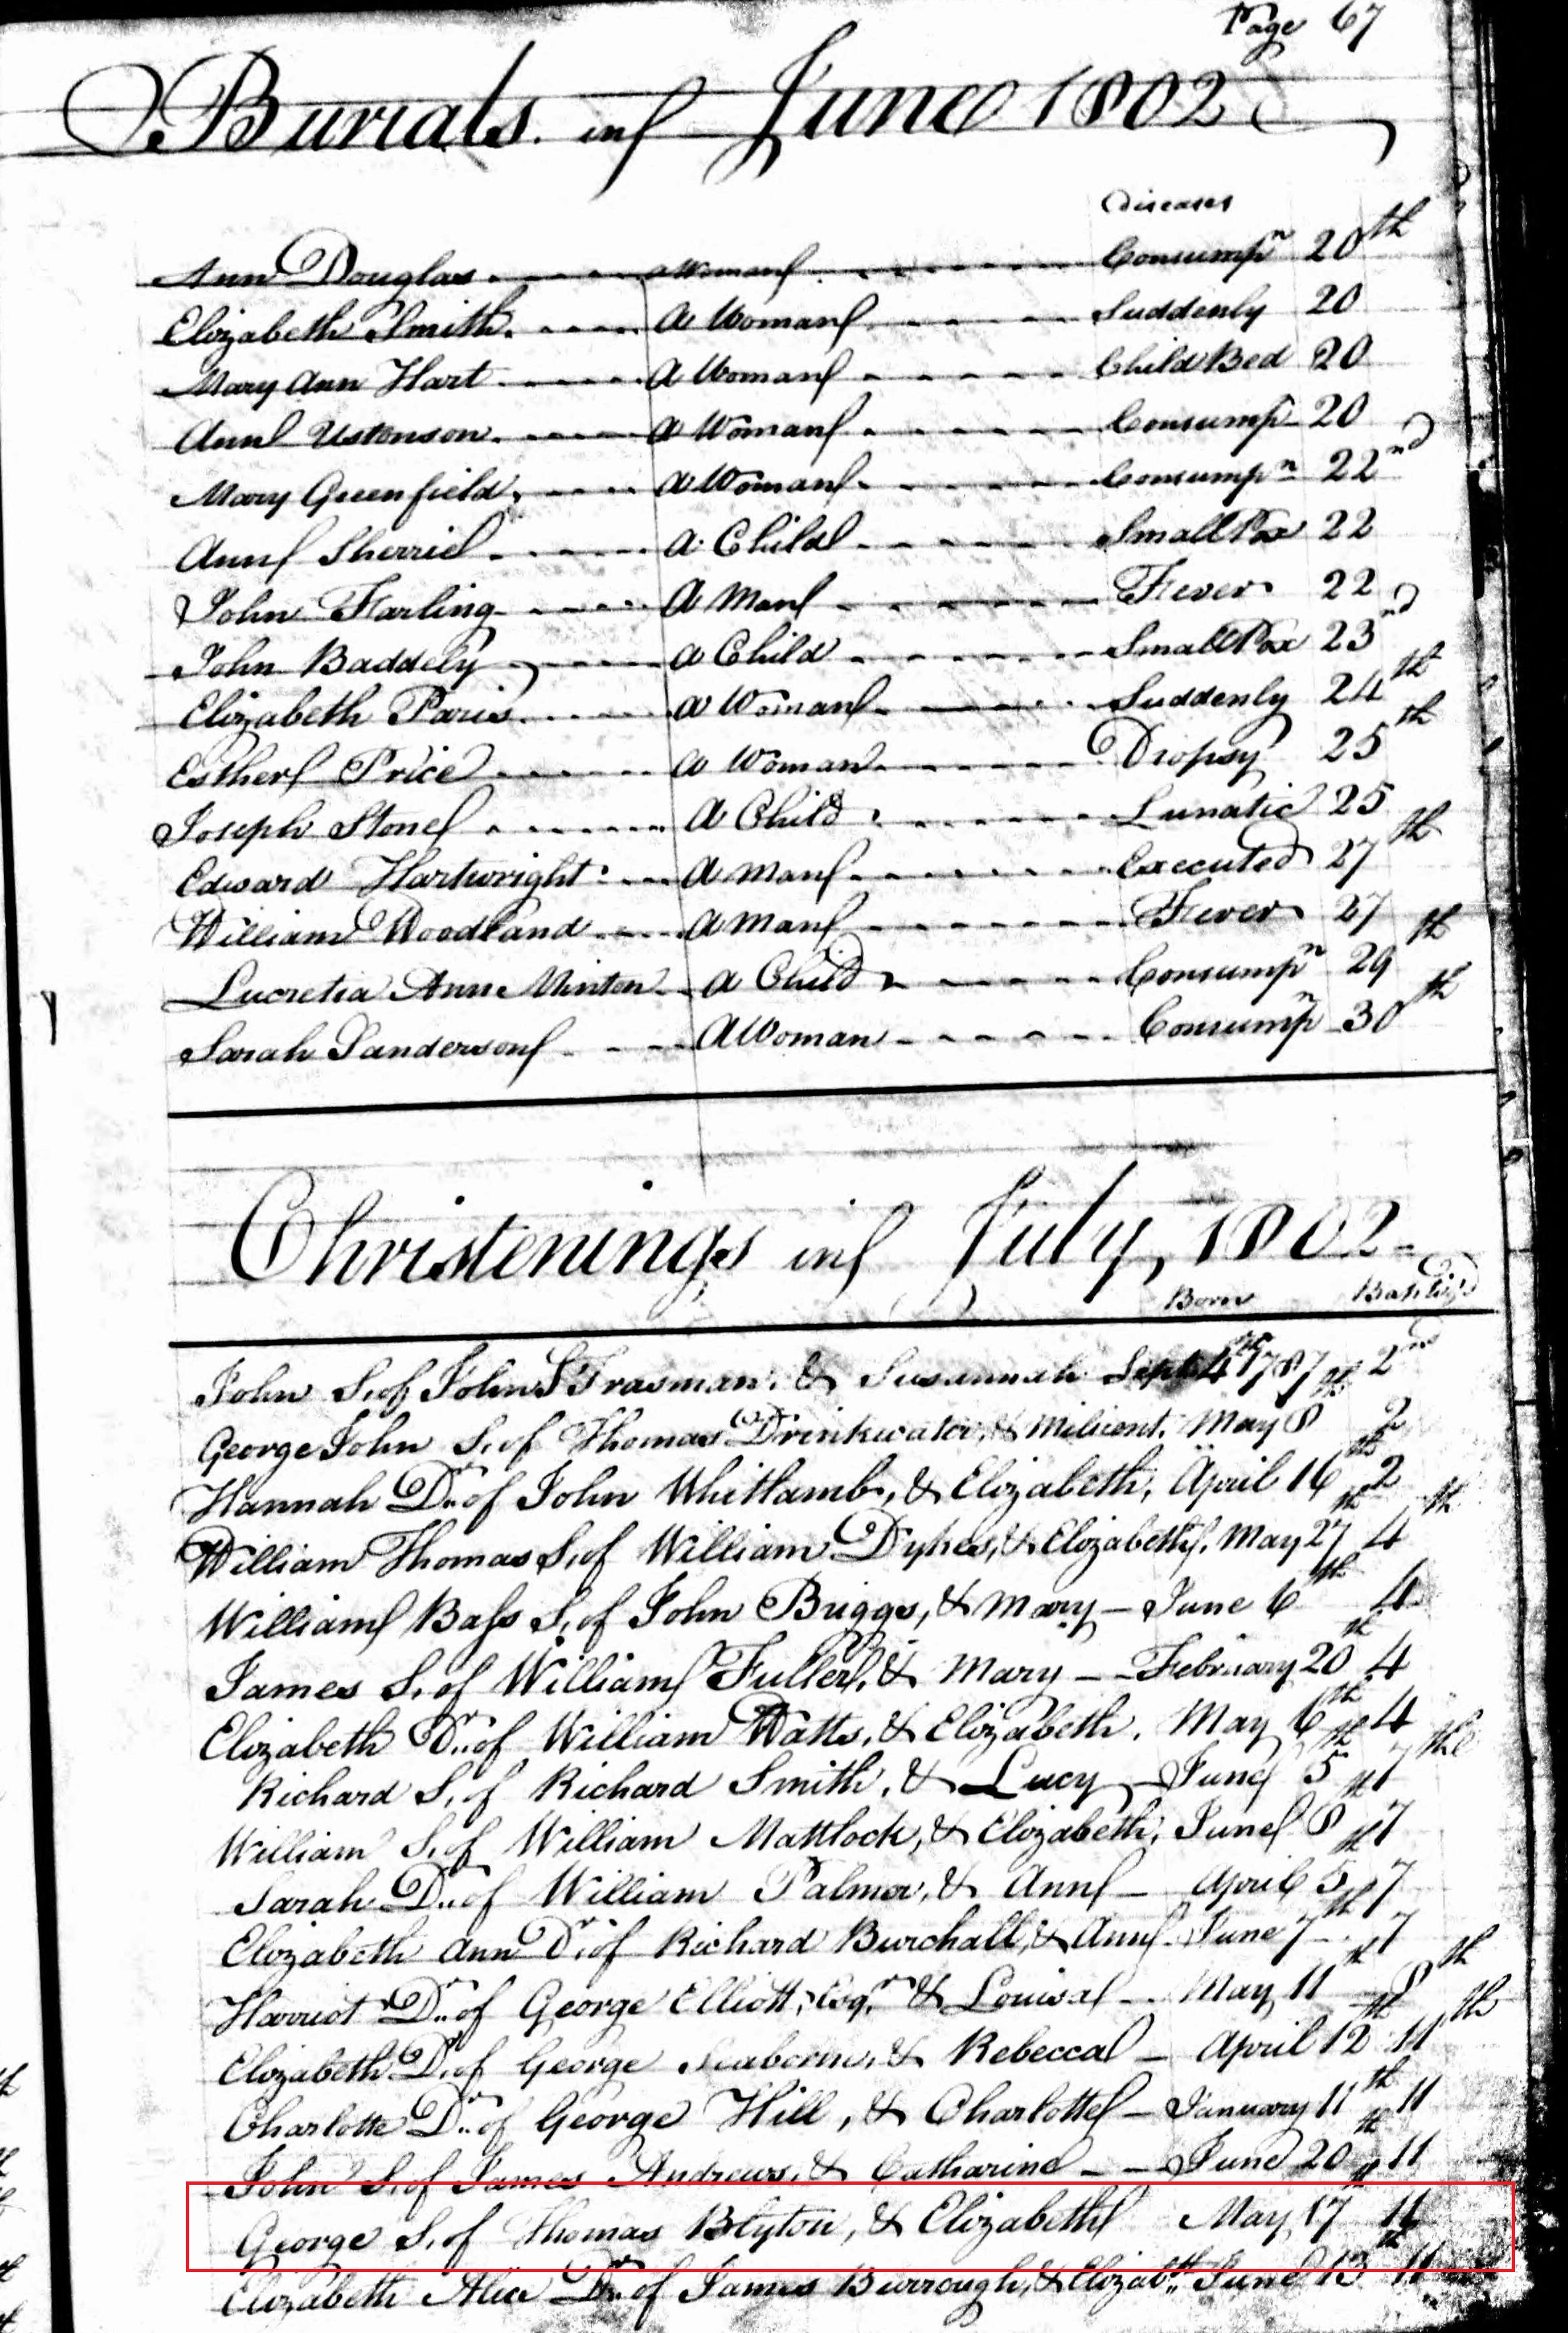 Page 67
Burials in June 1802
Diseases
Ann Douglas a Woman Consumpn 20th
Elizabeth Smith. a Woman Suddenly 20
Mary Ann Hart a Woman Child Bed 20
Ann a Woman Consump 20
Mary Greenfield, a Woman Consumpn 22nd
Ann Sherriel a Child Small Pox 22
John Harling a Man Fever 22
John Baddely a Child Small Pox 23rd
Elizabeth Paris a Woman Suddenly 24th
Esther Price a Woman Dropsy 25th
Joseph Stone a Child Lunatic 25
Edward Hartwright a Man Executed 27th
William Woodland a Man Fever 27
Lucretia Ann Minton a Child Consumpn 29th
Sarah Sanderson a Woman Consumpn 30th
Christenings in July, 1802
Born Baptizd
John S. of John Frasman, & Susannah Sept 4th 1787 2nd
George John S. of Thomas Drinkwater, & Milicent. May 8th 2
Hannah Dr. of John Whitlamb, & Elizabeth, April 16th 2
William Thomas S. of William Dykes, & Elizabeth, May 27th 4th
William Bass S. of John Briggs, & Mary June 6th 4
James S. of William Fuller, & Mary February 20th 4
Elizabeth Dr. of William Watts, & Elizabeth. May 6th 4
Richard S. of Richard Smith, & Lucy June 5th 7th
William S. of William Mattlock, & Elizabeth, June 8th 7
Sarah Dr. of William Palmer, & Ann April 5th 7
Elizabeth Ann Dr. of Richard Burchall, & Ann June 7th 7
Harriot Dr. of George Elliott, Esqr. & Louisa May 11th 8th
Elizabeth Dr. of George & Rebecca April 12th 11th
Charlotte Dr. of George Hill, & Charlotte January 11th 11
John S. of James Andrews, & Catharine June 20th 11
George S. of Thomas Blyton, & Elizabeth May 17th 11
Elizabeth Alice Dr. of James Burrough, & Elizabth. June 13th 11